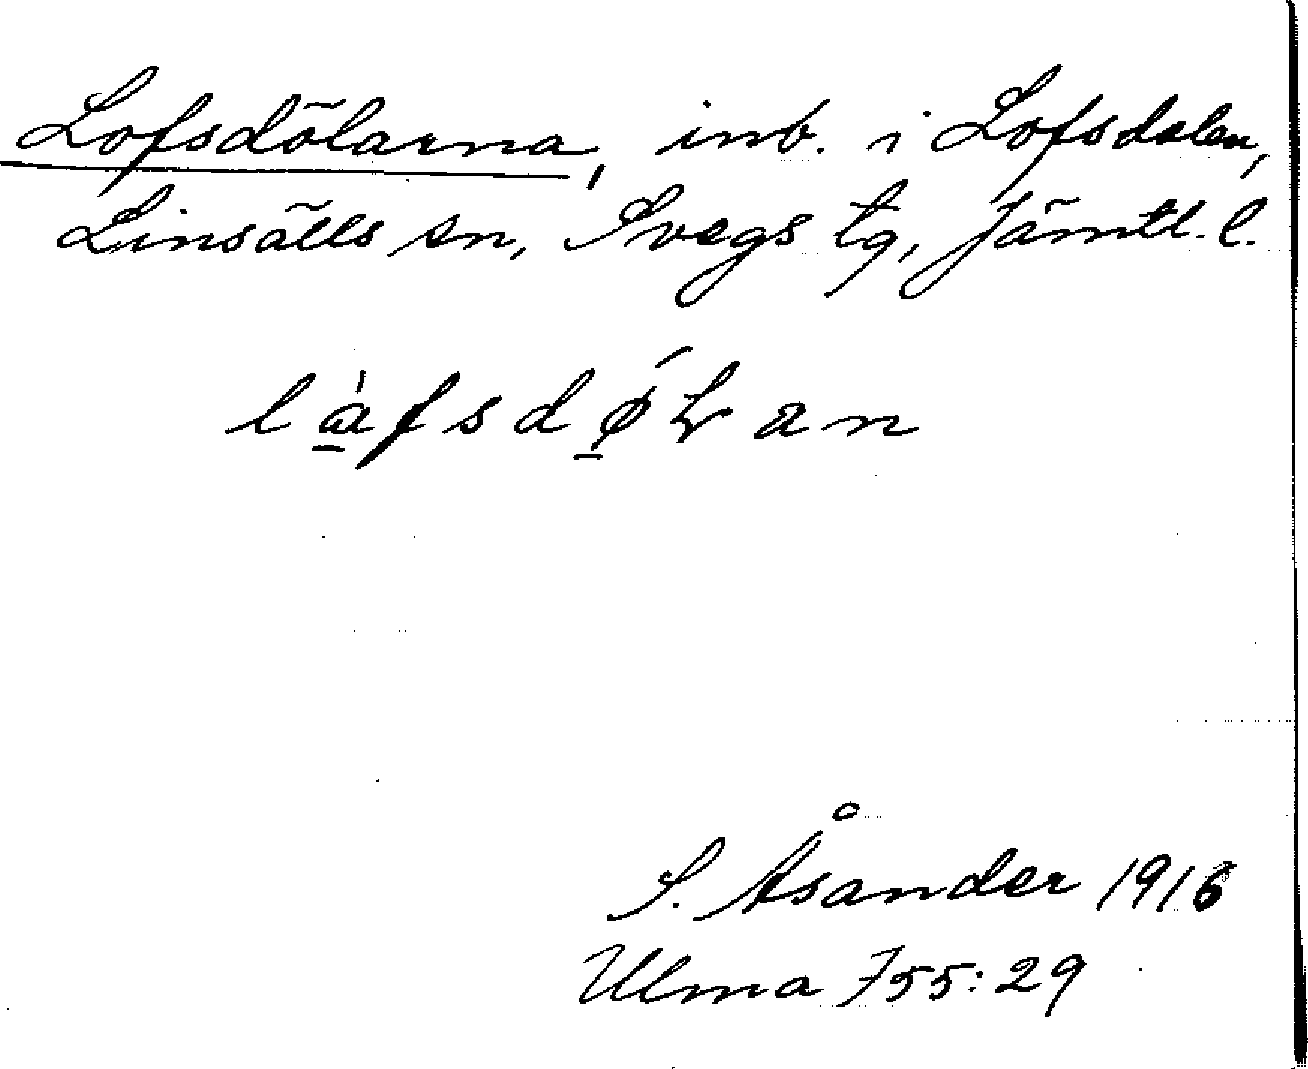 Lofsdölarna, inb. i Lofsdalen,
Linsälls sn, Svegs tg, Jämtl. l.
S. Åsander 1916
Ulma 755:29